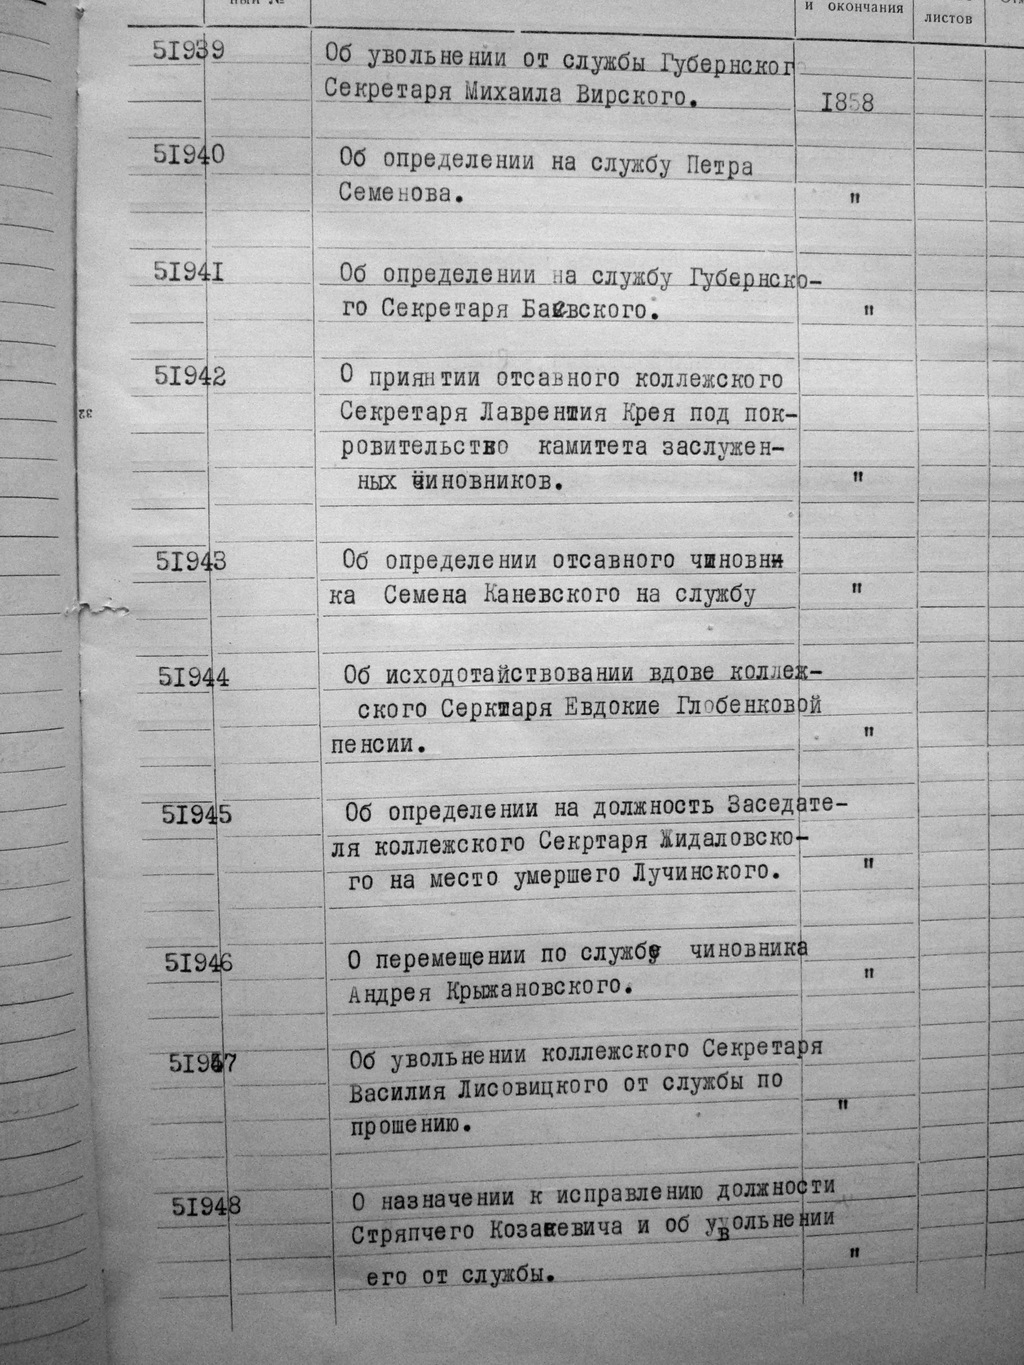 ный №
и окончания
листов
51939
Об увольнении от службы Губернског
Секретаря Михаила Вирского.
1858
51940
Об определении на службу Петра
Семенова.
"
51941
Об определении на службу Губернско-
го Секретаря Баевского.
"
51942
О приянтии отсавного коллежского
Секретаря Лаврентия Крея под пок-
ровительство камитета заслужен-
ных чиновников.
"
32
51943
Об определении отсавного чиновни
ка Семена Каневского на службу
"
51944
Об исходотайствовании вдове коллеж-
ского Серктаря Евдокие Глобенковой
пенсии.
"
51945
Об определении на должность Заседате-
ля коллежского Секртаря Жидаловско-
го на место умершего Лучинского.
"
51946
О перемещении по службе чиновника
Андрея Крыжановского.
"
51947
Об увольнении коллежского Секретаря
Василия Лисовицкого от службы по
прошению.
"
51948
О назначении к исправлению должности
Стряпчего Козакевича и об увольнении
его от службы.
"